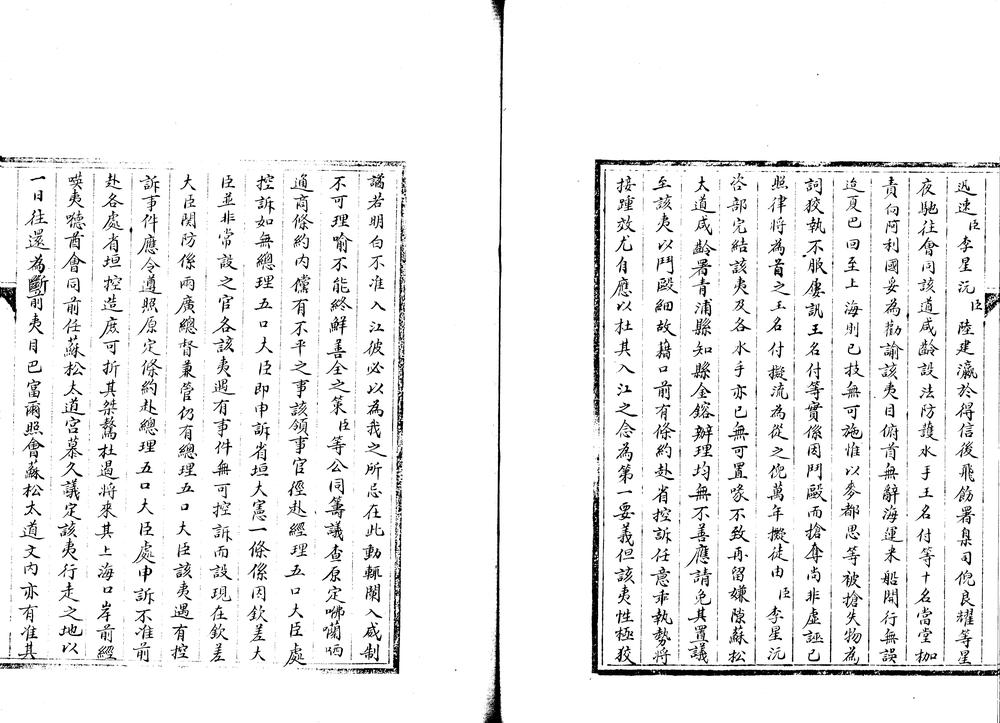 迅速臣李星沅臣陸建瀛於得信後飛飭署臬司倪良耀等星
夜馳往會同該道咸齡設法防護水手王名付等十名當堂枷
責向阿利國妥為勸諭該夷目俯首無辭海運米船開行無誤
迨夏巴回至上海則已技無可施惟以麥都思等被搶失物為
詞狡執不服屢訊王名付等實係因鬥毆而搶奪尚非虛誣已
照律將為首之王名付擬流為從之倪萬年擬徒由臣李星沅
咨部完結該夷及各水手亦已無可置喙不致再留嫌隙蘇松
太道咸齡署青浦縣知縣金鎔辦理均無不善應請免其置議
至該夷以鬥毆細故藉口前有條約赴省控訴任意乖執勢將
接踵效尤自應以杜其入江之念為第一要義但該夷性極狡
譎若明白不准入江彼必以為我之所忌在此動輒闌入咸制
不可理喻不能終解善全之策臣等公同籌議查原定咈囒哂
通商條約內儻有不平之事該領事官逕赴經理五口大臣處
控訴如無總理五口大臣即申訴省垣大憲一條係因欽差大
臣並非常設之官各該夷遇有事件無可控訴而設現在欽差
大臣關防係兩廣總督兼管仍有總理五口大臣該夷遇有控
訴事件應令遵照原定條約赴總理五口大臣處申訴不准前
赴各處省垣控造庶可折其桀驁杜過將來其上海口岸前經
㗲夷噁酋會同前任蘇松太道宮慕久議定該夷行走之地以
一日往還為斷前夷目巴富爾照會蘇松太道文內亦有准其